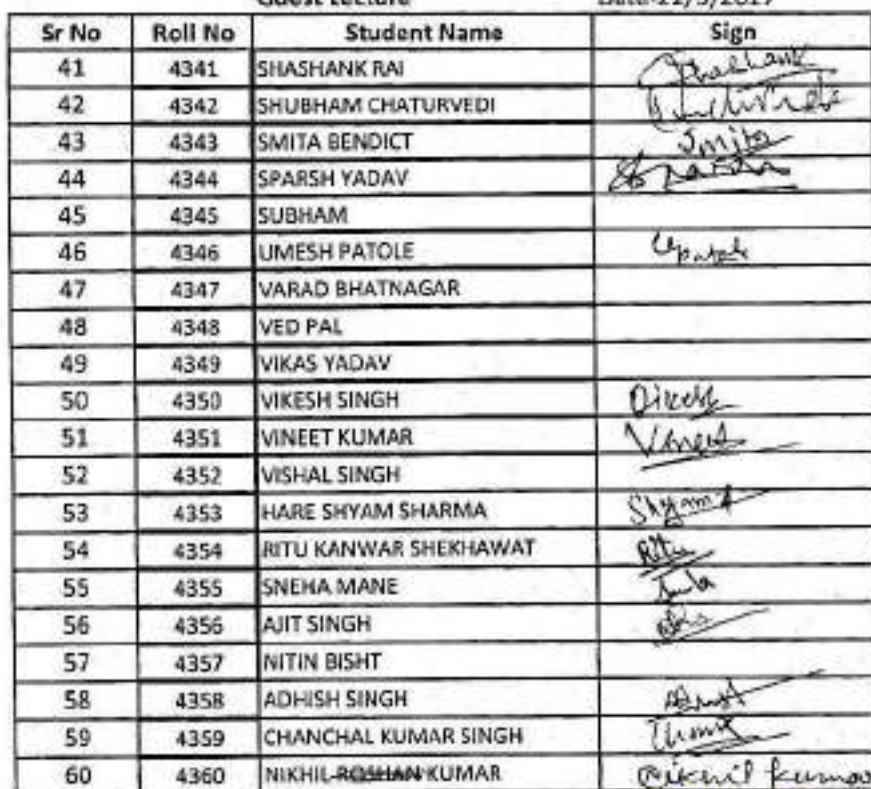 Guest Lecture Date-22/3/2017
Sr No Roll No Student Name Sign
41 4341 SHASHANK RAI Shashank
42 4342 SHUBHAM CHATURVEDI
43 4343 SMITA BENDICT Smita
44 4344 SPARSH YADAV Sparsh
45 4345 SUBHAM
46 4346 UMESH PATOLE Upatole
47 4347 VARAD BHATNAGAR
48 4348 VED PAL
49 4349 VIKAS YADAV
50 4350 VIKESH SINGH Vikesh
51 4351 VINEET KUMAR Vineet
52 4352 VISHAL SINGH
53 4353 HARE SHYAM SHARMA Shyam
54 4354 RITU KANWAR SHEKHAWAT Ritu
55 4355 SNEHA MANE
56 4356 AJIT SINGH
57 4357 NITIN BISHT
58 4358 ADHISH SINGH
59 4359 CHANCHAL KUMAR SINGH
60 4360 NIKHIL ROSHAN KUMAR Nikhil kumar